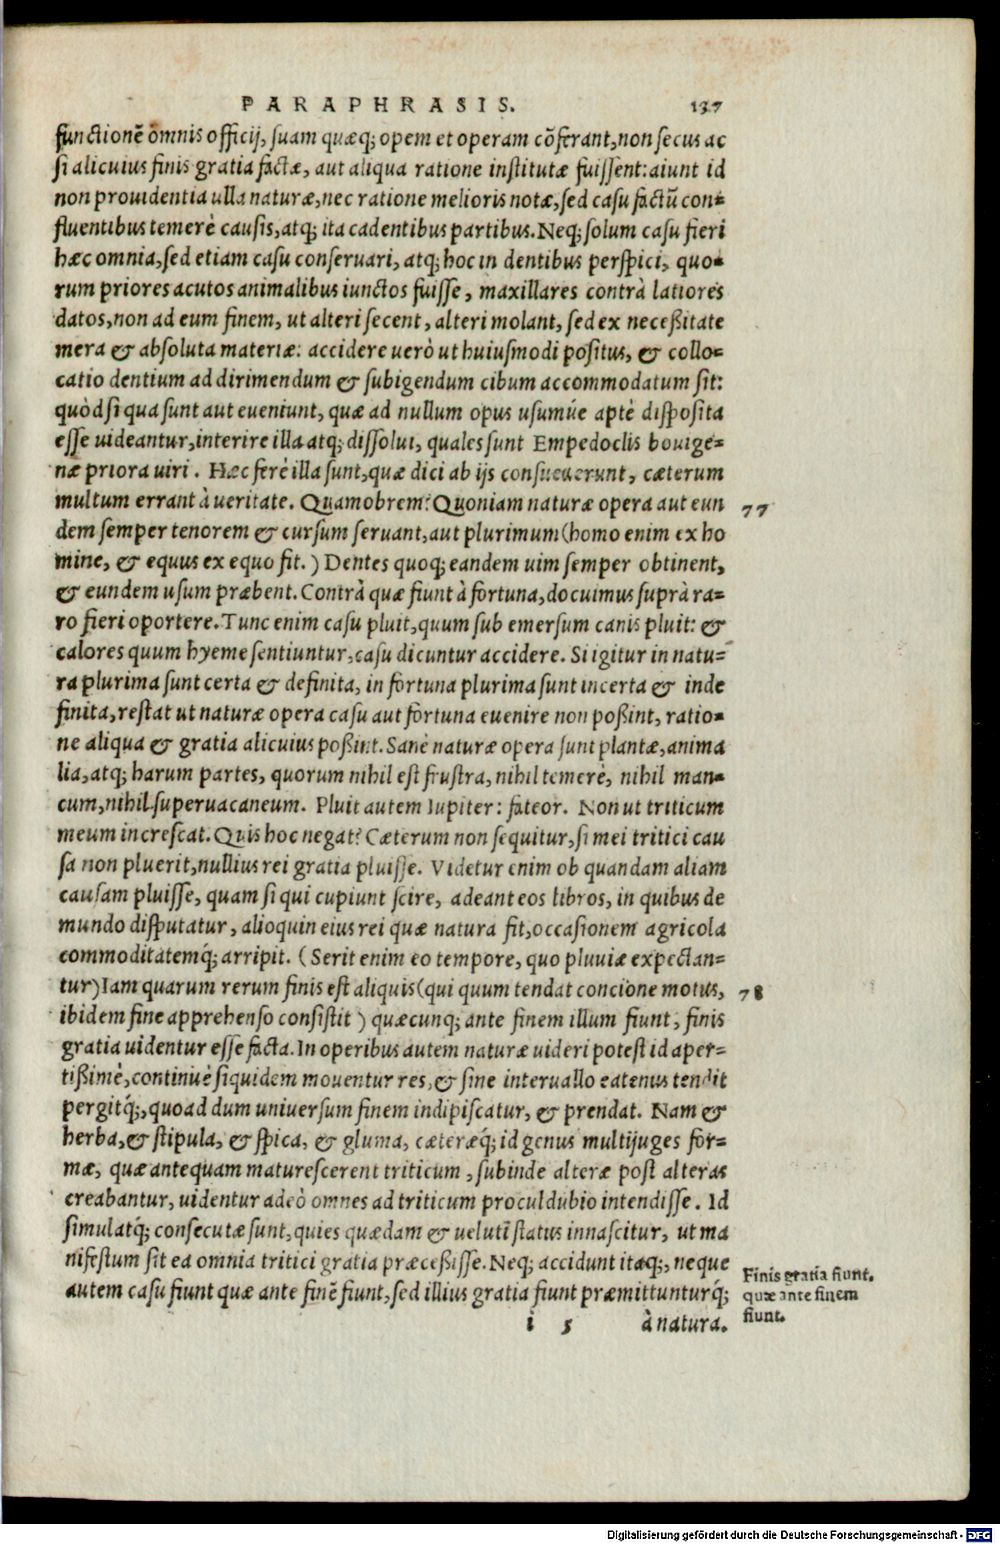 PARAPHRASIS. 137
functionē omnis officij, suam quæq; opem et operam cōferant, non secus ac
si alicuius finis gratia factæ, aut aliqua ratione institutæ fuissent: aiunt id
non prouidentia ulla naturæ, nec ratione melioris notæ, sed casu factū con-
fluentibus temerè causis, atq; ita cadentibus partibus. Neq; solum casu fieri
hæc omnia, sed etiam casu conseruari, atq; hoc in dentibus perspici, quo-
rum priores acutos animalibus iunctos fuisse, maxillares contrà latiores
datos, non ad eum finem, ut alteri secent, alteri molant, sed ex necessitate
mera & absoluta materiæ: accidere uerò ut huiusmodi positus, & collo-
catio dentium ad dirimendum & subigendum cibum accommodatum sit:
quòd si qua sunt aut eueniunt, quæ ad nullum opus usumúe aptè disposita
esse uideantur, interire illa atq; dissolui, quales sunt Empedoclis bouige-
næ priora uiri. Hæc ferè illa sunt, quæ dici ab ijs consueuerunt, cæterum
multum errant à ueritate. Quamobrem? Quoniam naturæ opera aut eun 77
dem semper tenorem & cursum seruant, aut plurimum (homo enim ex ho
mine, & equus ex equo fit.) Dentes quoq; eandem uim semper obtinent,
& eundem usum præbent. Contrà quæ fiunt à fortuna, docuimus suprà ra-
ro fieri oportere. Tunc enim casu pluit, quum sub emersum canis pluit: &
calores quum hyeme sentiuntur, casu dicuntur accidere. Si igitur in natu-
ra plurima sunt certa & definita, in fortuna plurima sunt incerta & inde
finita, restat ut naturæ opera casu aut fortuna euenire non possint, ratio-
ne aliqua & gratia alicuius possint. Sanè naturæ opera sunt plantæ, anima
lia, atq; harum partes, quorum nihil est frustra, nihil temerè, nihil man-
cum, nihil superuacaneum. Pluit autem Iupiter: fateor. Non ut triticum
meum increscat. Quis hoc negat? Cæterum non sequitur, si mei tritici cau
sa non pluerit, nullius rei gratia pluisse. Videtur enim ob quandam aliam
causam pluisse, quam si qui cupiunt scire, adeant eos libros, in quibus de
mundo disputatur, alioquin eius rei quæ natura fit, occasionem agricola
commoditatemq́; arripit. (Serit enim eo tempore, quo pluuiæ expectan-
tur) Iam quarum rerum finis est aliquis (qui quum tendat concione motus, 78
ibidem fine apprehenso consistit) quæcunq; ante finem illum fiunt, finis
gratia uidentur esse facta. In operibus autem naturæ uideri potest id aper-
tissimè, continuè siquidem mouentur res, & sine interuallo eatenus tendit
pergitq́;, quoad dum uniuersum finem indipiscatur, & prendat. Nam &
herba, & stipula, & spica, & gluma, cæteræq́; id genus multijuges for-
mæ, quæ antequam maturescerent triticum, subinde alteræ post alteras
creabantur, uidentur adeò omnes ad triticum proculdubio intendisse. Id
simulatq́; consecutæ sunt, quies quædam & uelutī status innascitur, ut ma
nifestum sit ea omnia tritici gratia præcessisse. Neq; accidunt itaq;, neque
autem casu fiunt quæ ante finē fiunt, sed illius gratia fiunt præmittunturq́;
Finis gratia fiunt,
quæ ante finem
fiunt.
i 5 à natura.
Digitalisierung gefördert durch die Deutsche Forschungsgemeinschaft - DFG